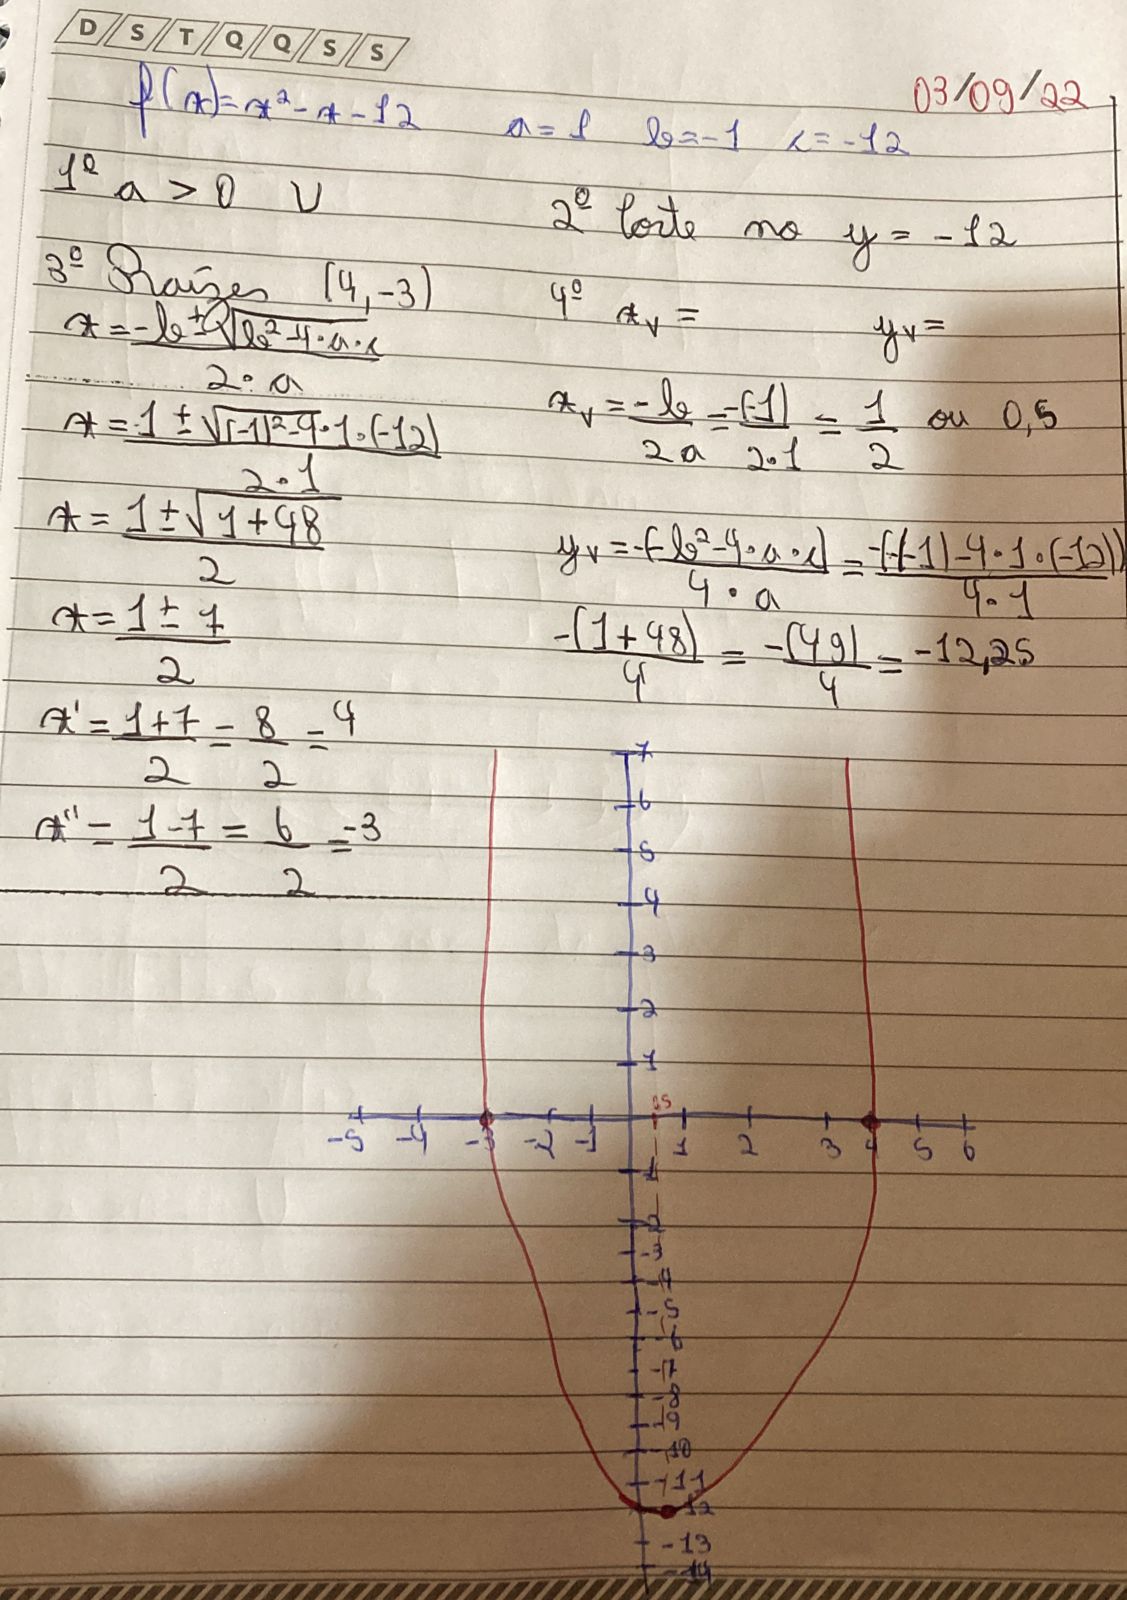 D S T Q Q S S
03/09/22
f(x)=x²-x-12 a=1 b=-1 c=-12
1º a > 0 U
2º Corte no y = -12
3º Raízes (4,-3)
x = -b±√b²-4·a·c
2·a
x = 1±√(-1)²-4·1·(-12)
2·1
x = 1±√1+48
2
x = 1±7
2
x' = 1+7 = 8 = 4
2 2
x'' = 1-7 = 6 = -3
2 2
4º xv = yv =
xv = -b = -(-1) = 1 ou 0,5
2a 2·1 2
yv = -(-b²-4·a·c) = -((-1)-4·1·(-12))
4·a 4·1
-(1+48) = -(49) = -12,25
4 4
7
6
5
4
3
2
1
0,5
-5 -4 -3 -2 -1 1 2 3 4 5 6
-1
-2
-3
-4
-5
-6
-7
-8
-9
-10
-11
-12
-13
-14